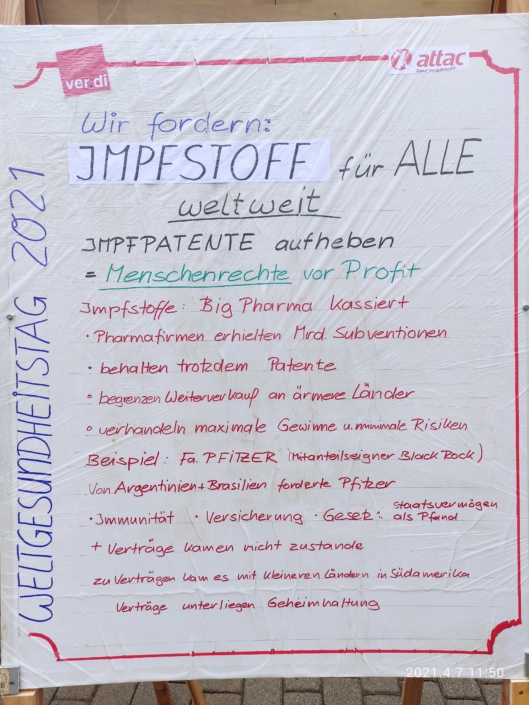 ver.di
attac
Wir fordern:
IMPFSTOFF für ALLE
weltweit
IMPFPATENTE aufheben
= Menschenrechte vor Profit
Impfstoffe: Big Pharma kassiert
• Pharmafirmen erhielten Mrd. Subventionen
• behalten trotzdem Patente
• begrenzen Weiterverkauf an ärmere Länder
• verhandeln maximale Gewinne u. minimale Risiken
Beispiel: Fa. PFiTZER (Mitanteilseigner Black Rock)
Von Argentinien + Brasilien forderte Pfitzer
• Immunität • Versicherung • Gesetz: Staatsvermögen
als Pfand
+ Verträge kamen nicht zustande
zu Verträgen kam es mit kleineren Ländern in Südamerika
Verträge unterliegen Geheimhaltung
WELTGESUNDHEITSTAG 2021
2021 4.7 11:50